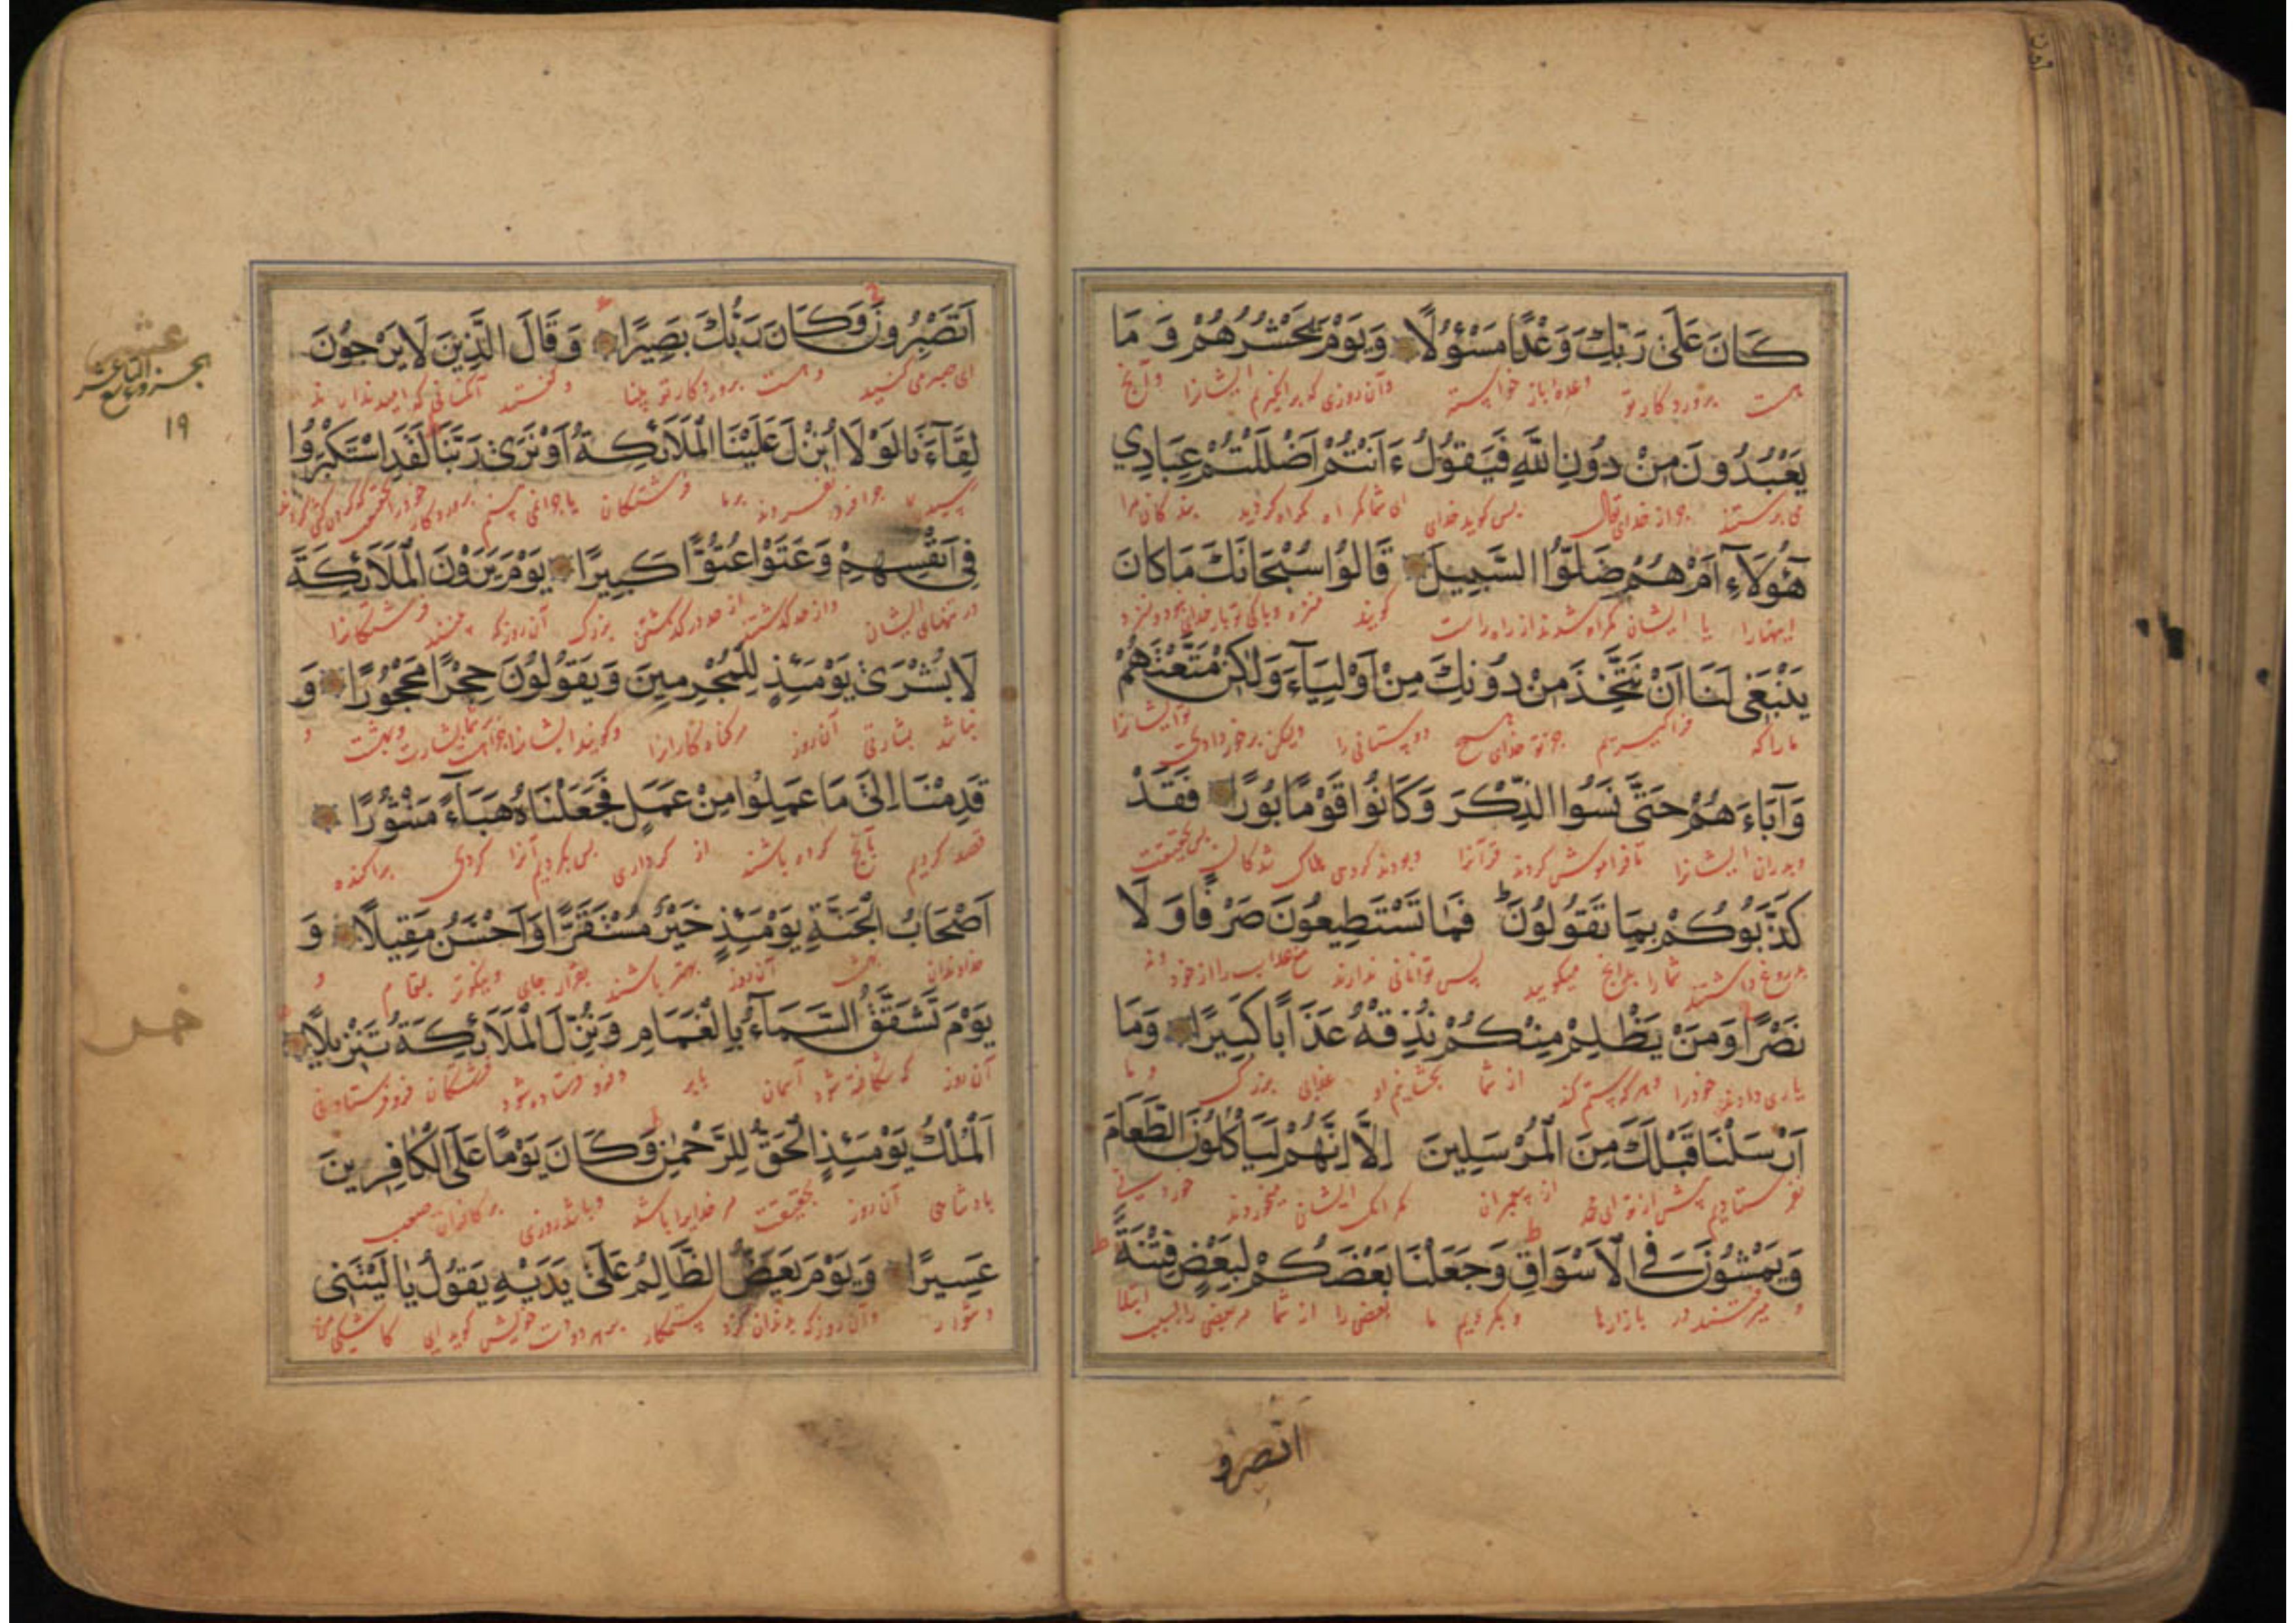 كَانَ عَلَىٰ رَبِّكَ وَعْدًا مَسْؤُلًا وَيَوْمَ يَحْشُرُهُمْ وَمَا
هست پروردكار تو وعدهٔ باز خواسته وآن روزى كه برانگيزيم ايشانرا وآنچ
يَعْبُدُونَ مِنْ دُونِ اللَّهِ فَيَقُولُ ءَاَنْتُمْ اَضْلَلْتُمْ عِبَادِي
مى پرستند جز از خداى تعالى پس گويد خداى اى شما گمراه كرديد بندكان مرا
هٰٓؤُلَآءِ اَمْ هُمْ ضَلُّوا السَّبِيلَ قَالُوا سُبْحَانَكَ مَاكَانَ
اينهارا يا ايشان گمراه شدند از راه راست گويند
يَنْبَغِى لَنَا اَنْ نَتَّخِذَ مِنْ دُونِكَ مِنْ اَوْلِيَآءَ وَلٰكِنْ مَتَّعْتَهُمْ
ماراكه فراگيريم جز تو خداى هيچ دوستانى را وليكن برخوردارى
وَآبَاءَهُمْ حَتَّىٰ نَسُوا الذِّكْرَ وَكَانُوا قَوْمًا بُورًا فَقَدْ
وپدران ايشانرا تا فراموش كردند قرآنرا وبودند گروهى هلاك شدگان پس بحقيقت
كَذَّبُوكُمْ بِمَا تَقُولُونَ فَمَا تَسْتَطِيعُونَ صَرْفًا وَلَا
بدروغ داشتند شمارا بدانچ ميگوييد پس توانائى ندارند عذاب را از خود ونه
نَصْرًا وَمَنْ يَظْلِمْ مِنْكُمْ نُذِقْهُ عَذَابًا كَبِيرًا وَمَا
يارى دادن خودرا وهركه ستم كند از شما بچشانيم او عذابى بزرگ وما
اَرْسَلْنَا قَبْلَكَ مِنَ الْمُرْسَلِينَ اِلَّا اِنَّهُمْ لَيَأْكُلُونَ الطَّعَامَ
نفرستاديم پيش از تو اى محمد از پيغمبران مگر آنك ايشان ميخوردند خوردنى
وَيَمْشُونَ فِى الْاَسْوَاقِ وَجَعَلْنَا بَعْضَكُمْ لِبَعْضٍ فِتْنَةً
و ميرفتند در بازارها وبكرديم ما بعضى را از شما مر بعضى را ابتلا
اتصبرو
اَتَصْبِرُونَ وَكَانَ رَبُّكَ بَصِيرًا وَقَالَ الَّذِينَ لَايَرْجُونَ
اى صبر مى كنيد وهست پروردكار تو بينا وگفتند آنكسانى كه اميد ندارند
لِقَآءَنَا لَوْلَا اُنْزِلَ عَلَيْنَا الْمَلَآئِكَةُ اَوْ نَرَىٰ رَبَّنَا لَقَدِ اسْتَكْبَرُوا
چرا برما فرشتگان يا چرا نمى بينيم پروردگار خودرا
فِى اَنْفُسِهِمْ وَعَتَوْا عُتُوًّا كَبِيرًا يَوْمَ يَرَوْنَ الْمَلَآئِكَةَ
در تنهاى ايشان واز حد گذشتند از حد درگذشتنى بزرگ آن روز كه بينند فرشتگانرا
لَابُشْرَىٰ يَوْمَئِذٍ لِلْمُجْرِمِينَ وَيَقُولُونَ حِجْرًا مَحْجُورًا وَ
نباشد بشارتى آن روز مر گناه كارانرا وگويند ايشانرا و
قَدِمْنَا اِلَىٰ مَا عَمِلُوا مِنْ عَمَلٍ فَجَعَلْنَاهُ هَبَآءً مَنْثُورًا
قصد كرديم بآنچ كرده باشند از كردارى پس بكرديم آنرا گردى پراكنده
اَصْحَابُ الْجَنَّةِ يَوْمَئِذٍ خَيْرٌ مُسْتَقَرًّا وَاَحْسَنُ مَقِيلًا وَ
خداوندان بهشت آن روز بهتر باشند بقرار جاى ونيكوتر بمقام و
يَوْمَ تَشَقَّقُ السَّمَآءُ بِالْغَمَامِ وَنُزِّلَ الْمَلَآئِكَةُ تَنْزِيلًا
آن روز كه شكافته شود آسمان بابر وفرو فرستاده شود فرشتگان فرو فرستادنى
اَلْمُلْكُ يَوْمَئِذٍ الْحَقُّ لِلرَّحْمٰنِ وَكَانَ يَوْمًا عَلَى الْكَافِرِينَ
پادشاهى آن روز بحقيقت مر خدايرا باشد وباشد روزى بر كافران صعب
عَسِيرًا وَيَوْمَ يَعَضُّ الظَّالِمُ عَلَىٰ يَدَيْهِ يَقُولُ يَا لَيْتَنِى
دشوار وآن روز كه بدندان گزد ستمكار بر هر دو دست خويش گويد اى كاشكى من
عشر
الجزو التاسع عشر
١٩
خمس